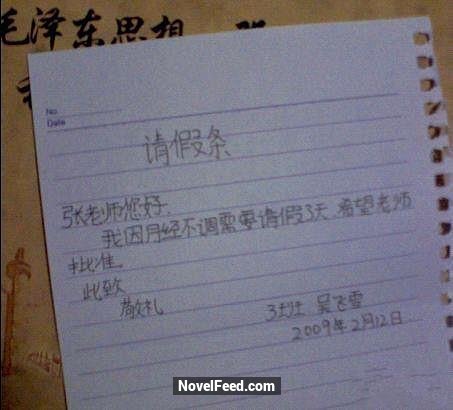 毛泽东思想
No.
Date
请假条
张老师您好.
我因月经不调需要请假3天.希望老师
批准.
此致
敬礼
3班 吴飞雪
2009年2月12日
NovelFeed.com